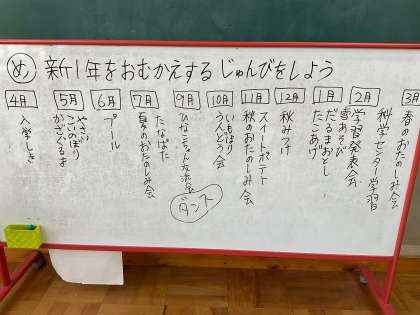 め 新1年をおむかえするじゅんびをしよう
4月
入学しき
5月
やさい
こいのぼり
かざぐるま
6月
プール
7月
たなばた
夏のおたのしみ会
9月
ダンス
10月
いもほり
うんどう会
11月
スイートポテト
秋のおたのしみ会
12月
秋みつけ
1月
だるまおとし
たこあげ
2月
学習発表会
雪あそび
3月
春のおたのしみ会
科学センター学習